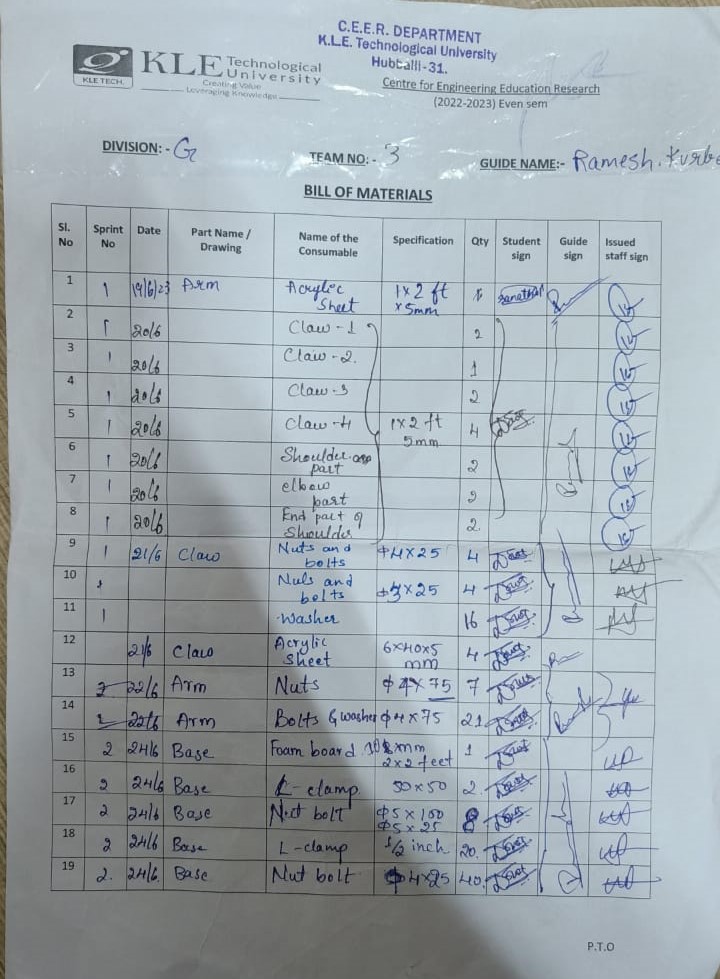 C.E.E.R. DEPARTMENT
K.L.E. Technological University
Hubballi-31.
KLE TECH.
KLE Technological University
Creating Value
Leveraging Knowledge
Centre for Engineering Education Research
(2022-2023) Even sem
DIVISION: - G TEAM NO: - 3 GUIDE NAME:- Ramesh.
BILL OF MATERIALS
Sl. No Sprint No Date Part Name / Drawing Name of the Consumable Specification Qty Student sign Guide sign Issued staff sign
1 1 19/6/23 Arm Acrylic Sheet 1x2 ft x5mm
2 1 20/6 Claw-1 2
3 1 20/6 Claw-2. 1
4 1 20/6 Claw-3 2
5 1 20/6 Claw-4 1x2 ft 5mm 4
6 1 20/6 Shoulder part 2
7 1 20/6 elbow part 2
8 1 20/6 End part of Shoulder 2
9 1 21/6 Claw Nuts and bolts φ4x25 4
10 1 Nuts and bolts φ3x25 4
11 1 Washer 16
12 21/6 Claw Acrylic Sheet 6x40x5 mm 4
13 2 22/6 Arm Nuts φ4x75 7
14 2 22/6 Arm Bolts & washer φ4x75 21
15 2 24/6 Base Foam board mm 2x2 feet 1
16 2 24/6 Base L-clamp 50x50 2
17 2 24/6 Base Nut bolt φ5x100 φ5x25 8
18 2 24/6 Base L-clamp 1/2 inch 20
19 2. 24/6 Base Nut bolt φ4x25 40
P.T.O